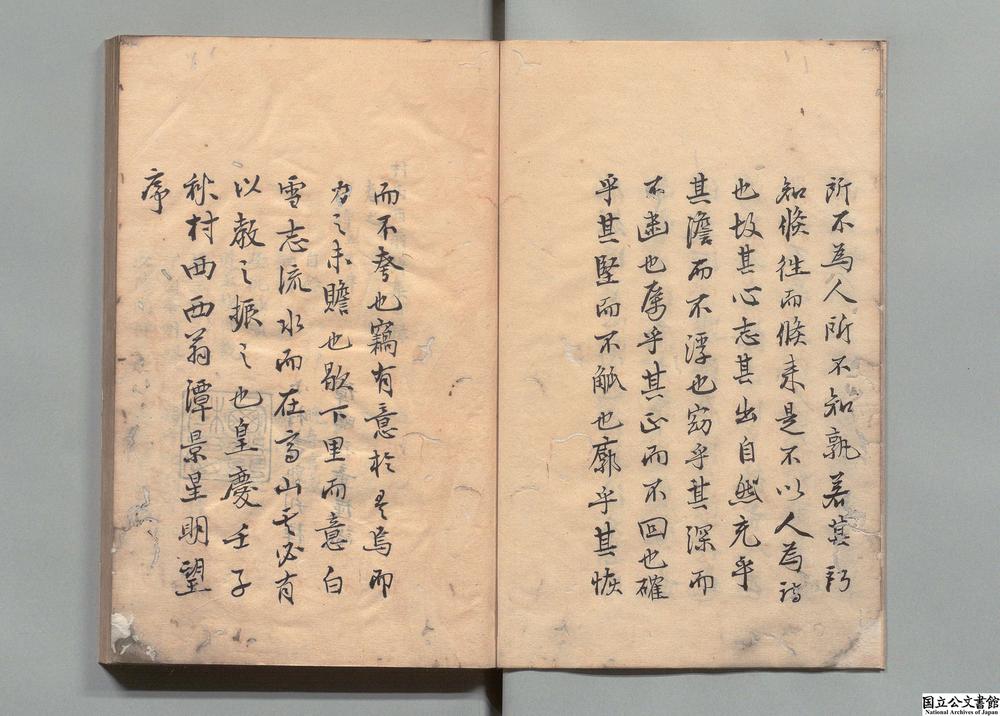 所不為人所不知孰若其所
知倐徃而倐来是不以人為詩
也故其心志其出自然充乎
其澹而不浮也窈乎其深而
不迷也厲乎其正而不回也確
乎其堅而不觚也廓乎其恢
而不夸也竊有意於是焉而
力之未贍也歌下里而意白
雪志流水而在高山其必有
以教之振之也皇慶壬子
秋村西西翁潭景星明望
序
国立公文書館
National Archives of Japan